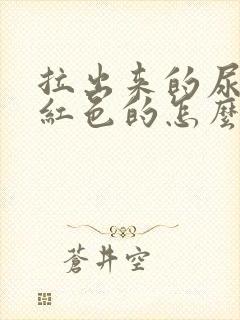 拉出来的尿
紅色的怎麼
蒼井空